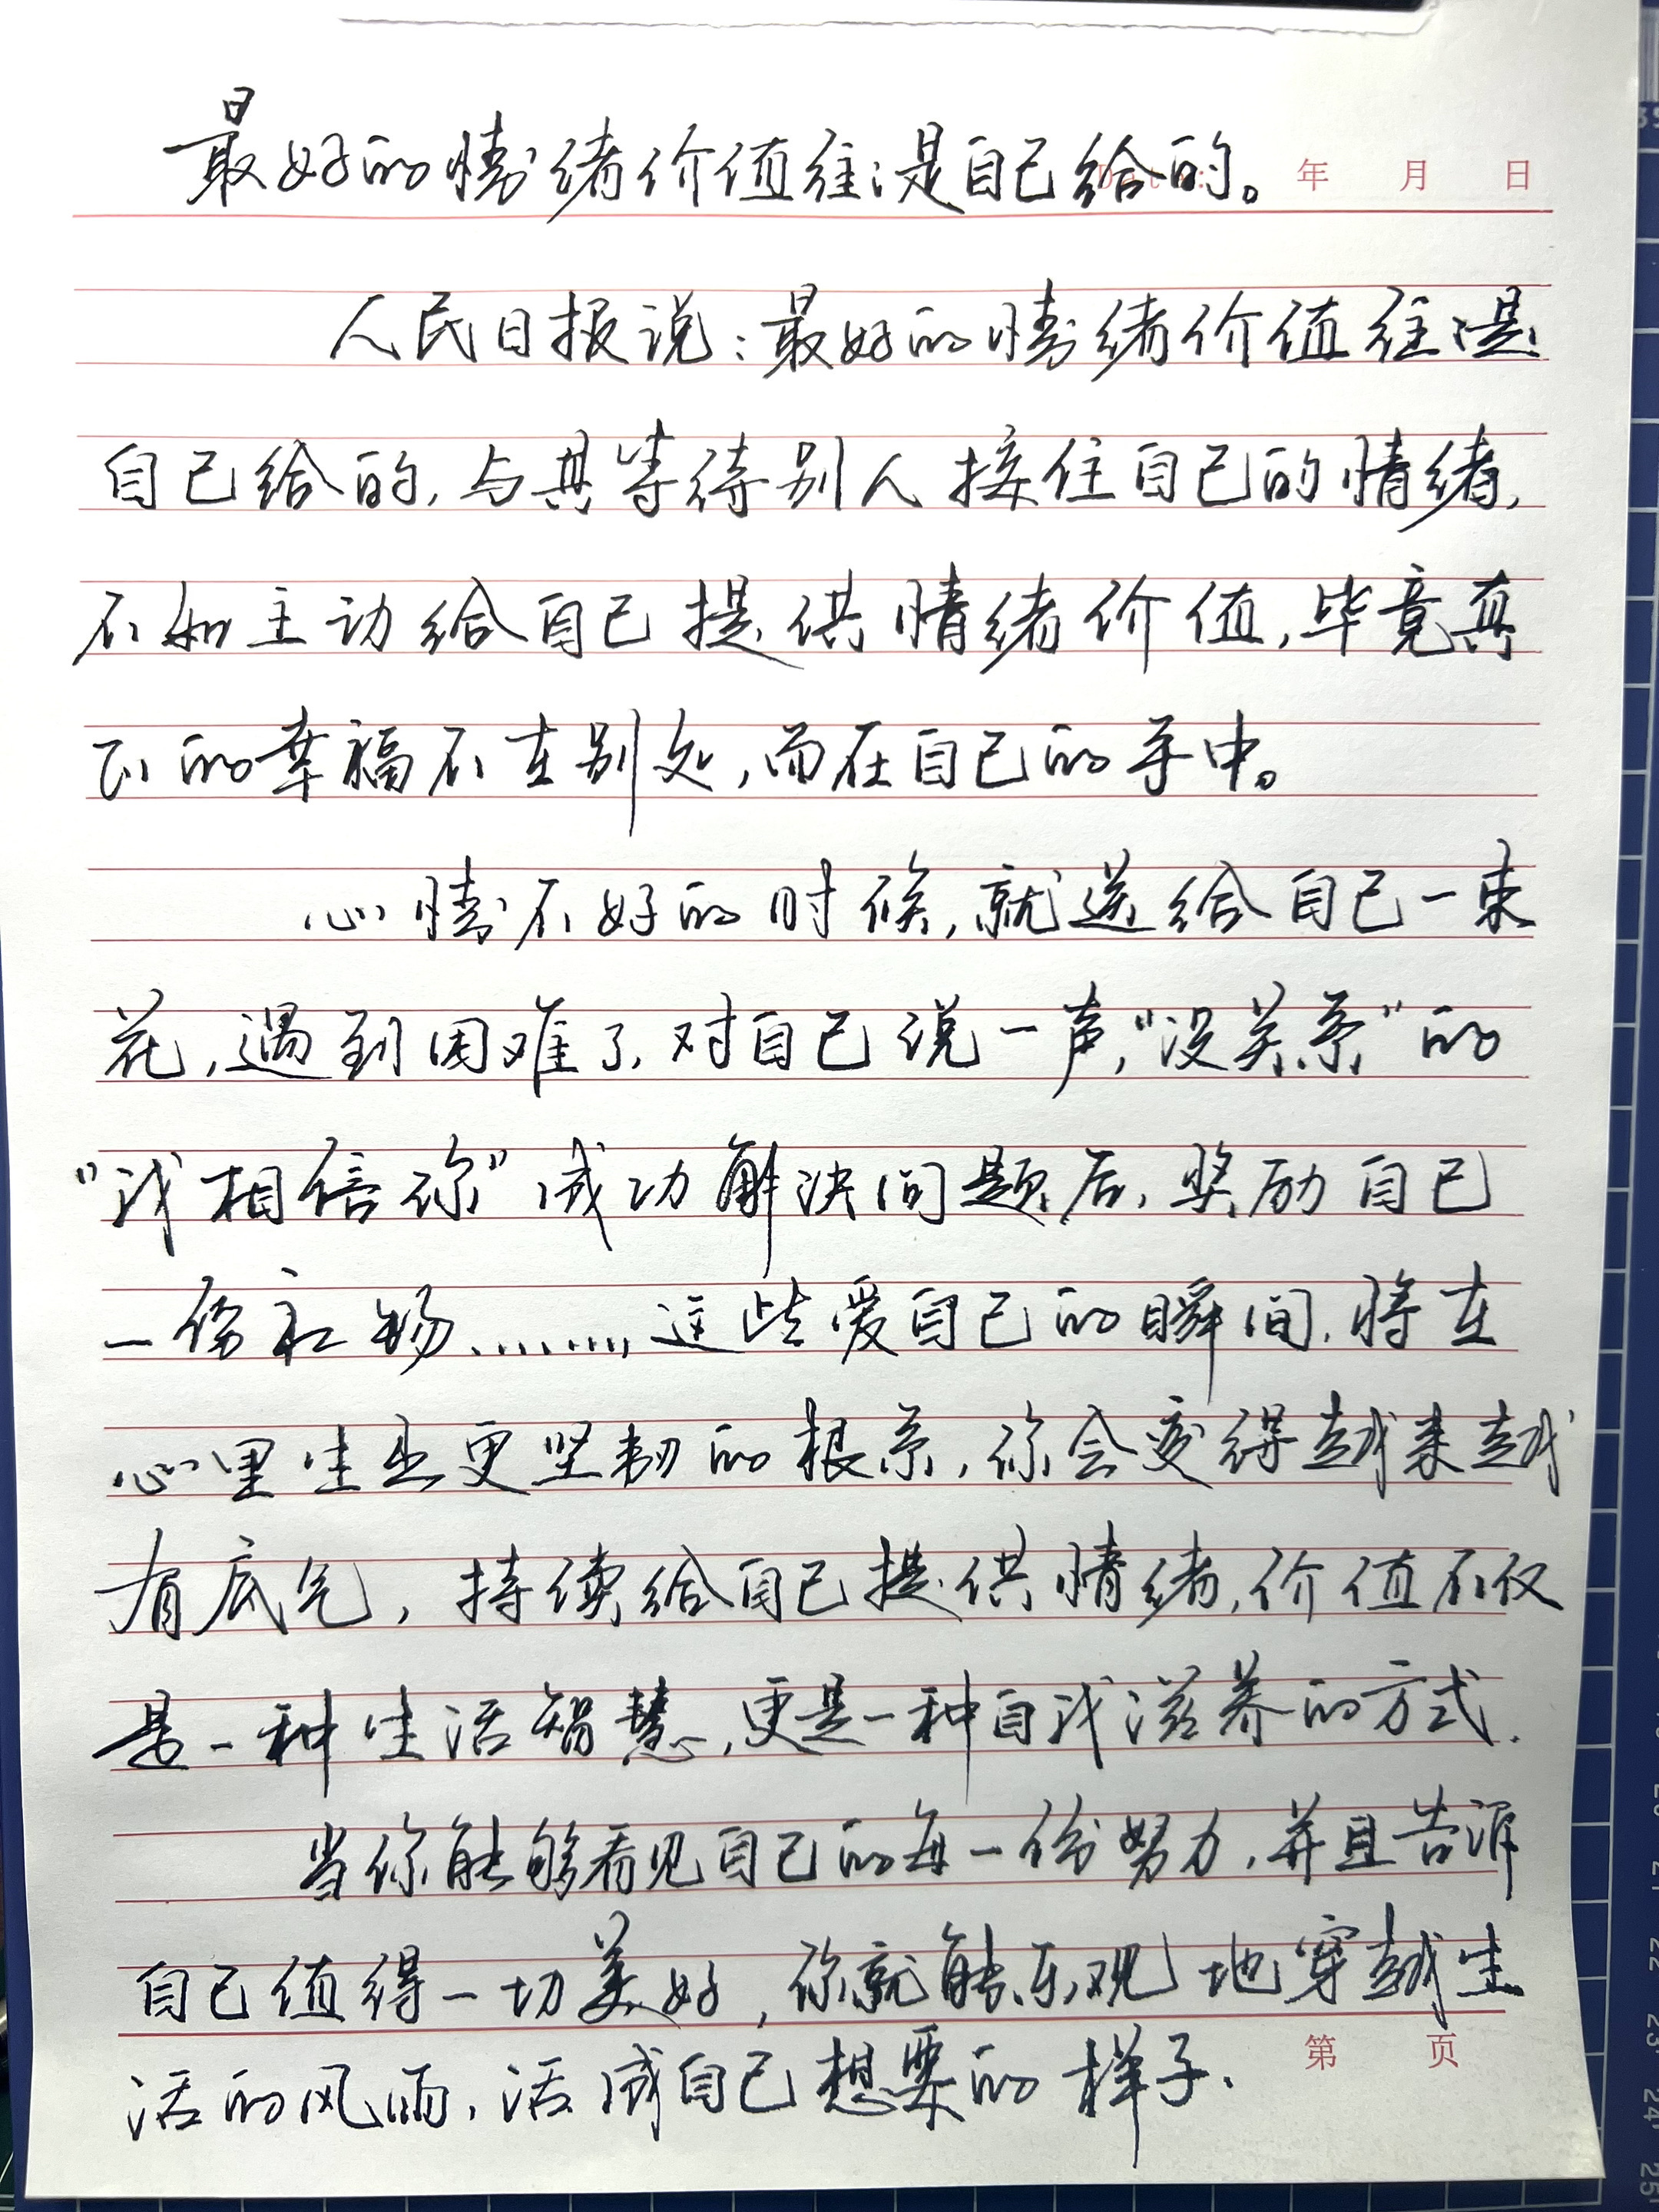 最好的情绪价值往往是自己给的。 Date: 年 月 日
人民日报说：最好的情绪价值往往是
自己给的，与其等待别人接住自己的情绪，
不如主动给自己提供情绪价值，毕竟真
正的幸福不在别处，而在自己的手中。
心情不好的时候，就送给自己一束
花，遇到困难了，对自己说一声，“没关系”的
“我相信你”成功解决问题后，奖励自己
一份礼物………这些爱自己的瞬间，将在
心里生出更坚韧的根系，你会变得越来越
有底气，持续给自己提供情绪，价值不仅
是一种生活智慧，更是一种自我滋养的方式.
当你能够看见自己的每一份努力，并且告诉
自己值得一切美好，你就能乐观地穿越生
活的风雨，活成自己想要的样子. 第 页
20
21
22
23
24
25